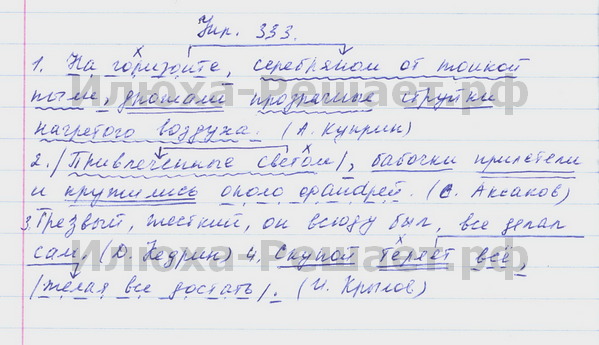 Упр. 333.
1. На горизонте, серебряном от тонкой
пыли, дрожали прозрачные струйки
нагретого воздуха. (А. Куприн)
2. /Привлеченные светом/, бабочки прилетели
и кружились около фонарей. (С. Аксаков)
3. Трезвый, жесткий, он всюду был, все делал
сам. (Д. Кедрин) 4. Скупой теряет всё,
/желая все достать/. (И. Крылов)
Илюха-Решает.рф
Илюха-Решает.рф
Илюха-Решает.рф